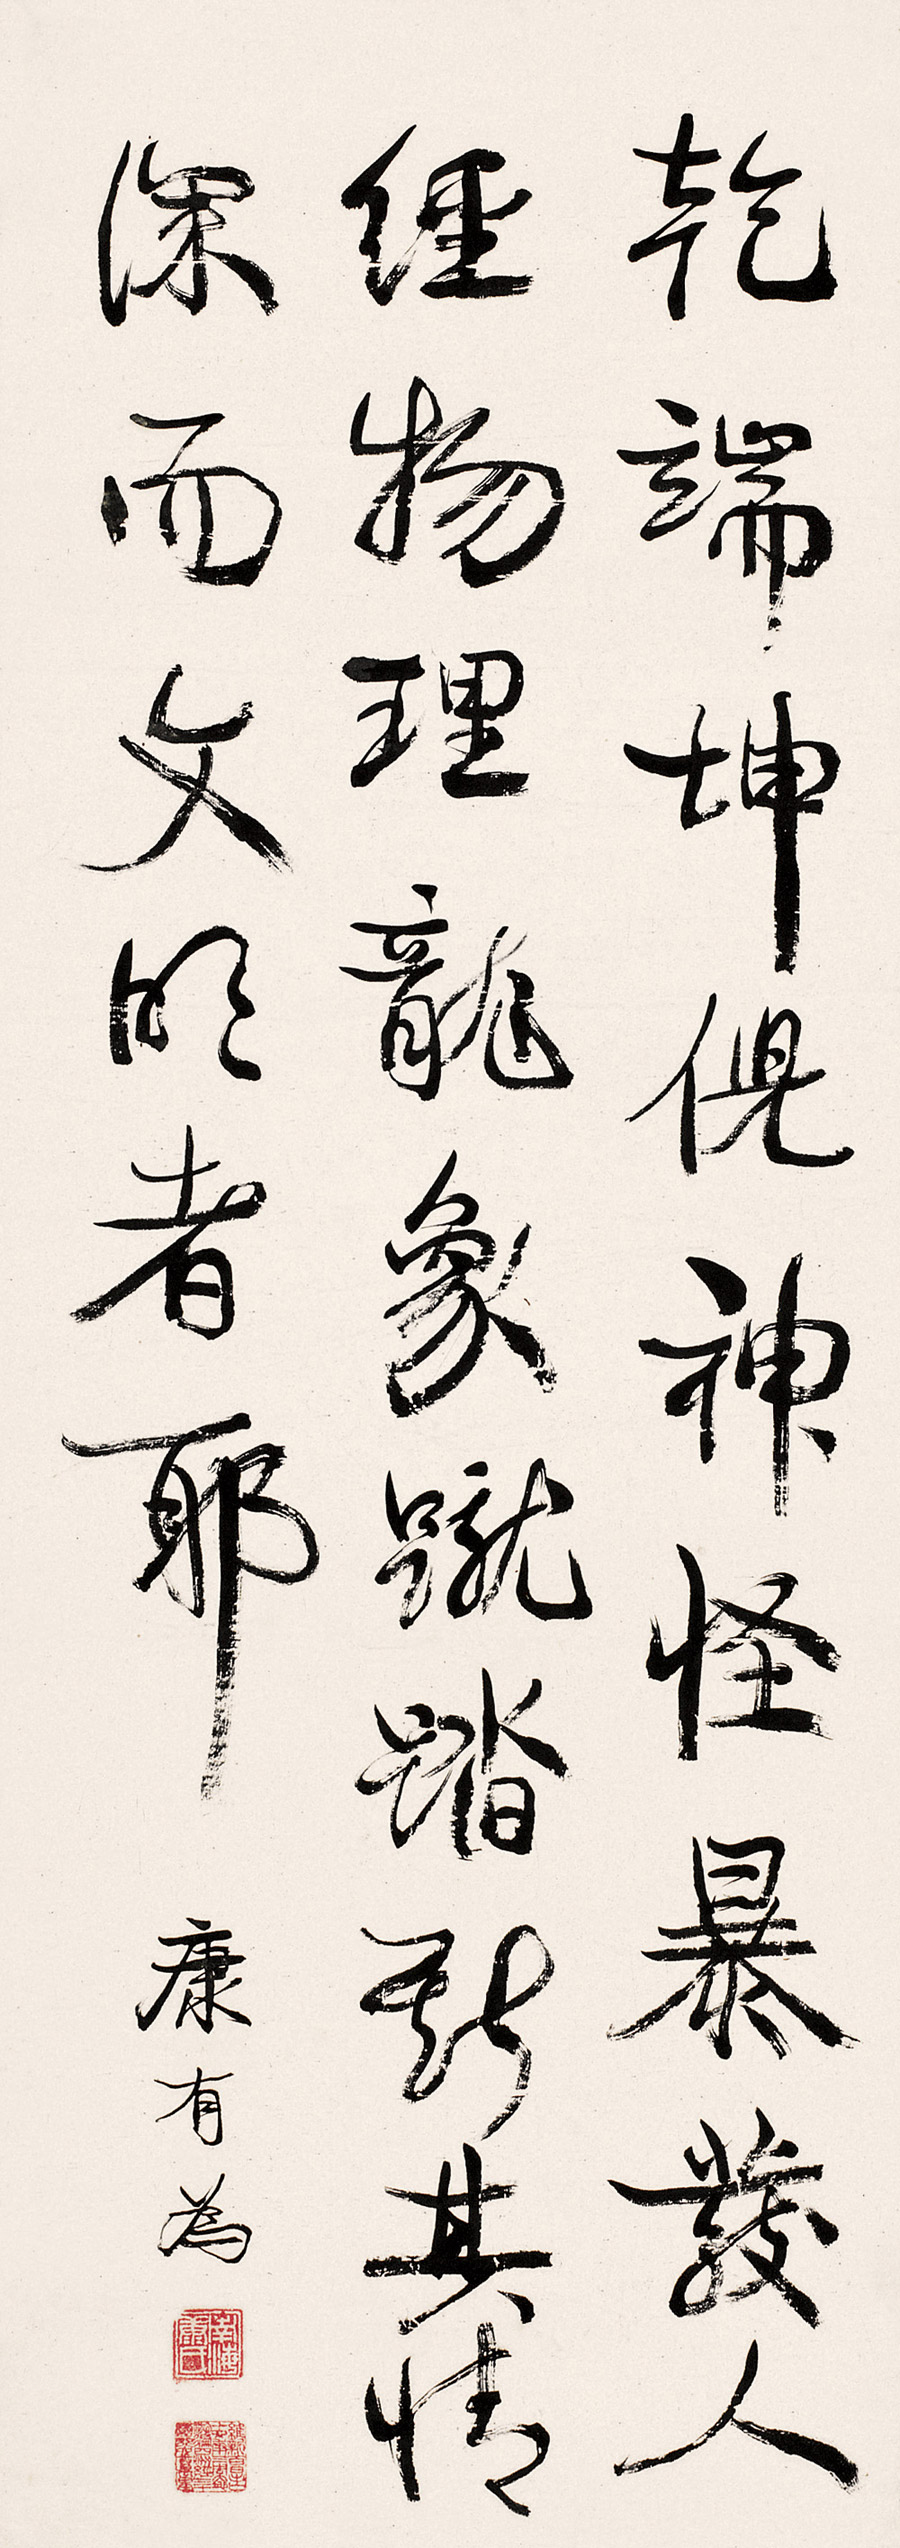 乾端坤倪神怪暴發人
經物理龍象蹴踏其情
深而文明者耶
康有為
南海康氏